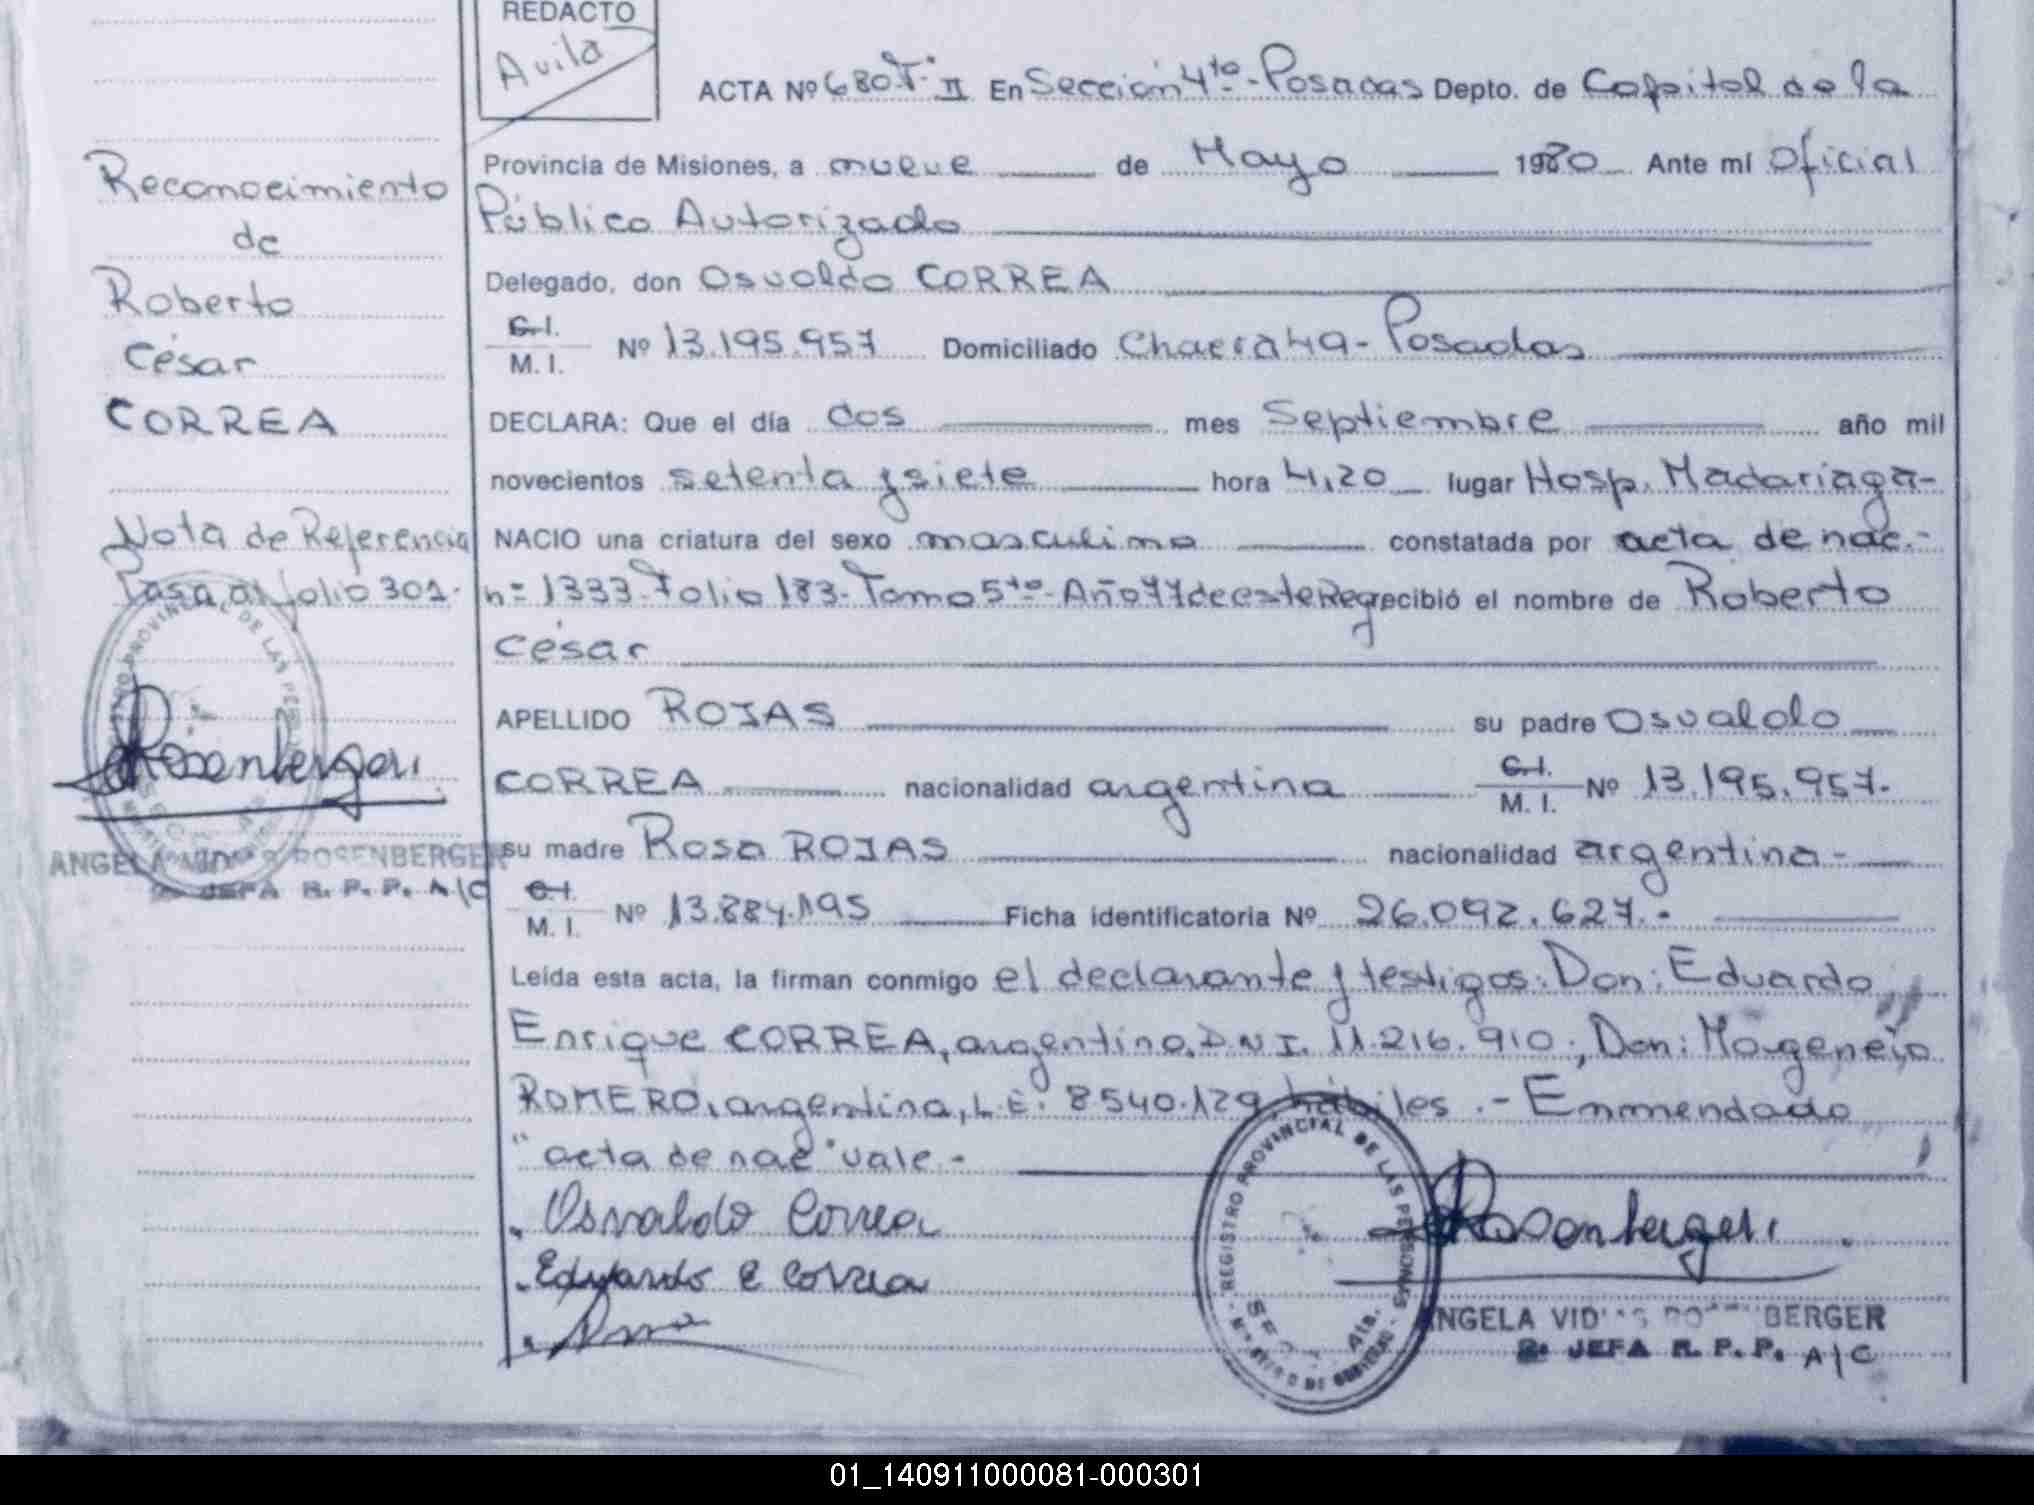 REDACTO
Avila
ACTA Nº 680 T. II En Sección 4ta.-Posadas Depto. de Capital de la
Provincia de Misiones, a nueve de Mayo 1980 Ante mí Oficial
Público Autorizado
Delegado, don Osvaldo CORREA
C.I.
M. I. Nº 13.195.957 Domiciliado Chacra 49-Posadas
DECLARA: Que el día dos mes Septiembre año mil
novecientos setenta y siete hora 4,20 lugar Hosp. Madariaga-
NACIO una criatura del sexo masculino constatada por acta de nac.-
nº 1333-Folio 183-Tomo 5to-Año 77 de este Reg recibió el nombre de Roberto
César
APELLIDO ROJAS su padre Osvaldo
CORREA nacionalidad argentina C.I.
M. I. Nº 13.195.957.
su madre Rosa ROJAS nacionalidad argentina-
C.I.
M. I. Nº 13.884.195 Ficha identificatoria Nº 26.092.627.-
Leída esta acta, la firman conmigo el declarante y testigos: Don: Eduardo
Enrique CORREA, argentino, D.N.I. 11.216.910; Don:
ROMERO, argentina, L.E. 8540.129, hábiles .- Enmendado
"acta de nac" vale.-
Osvaldo Correa
Eduardo E Correa
Rosenberger
REGISTRO PROVINCIAL DE LAS PERSONAS
4ta.
ANGELA VID BERGER
2º JEFA R. P. P. A/C
Reconocimiento
de
Roberto
César
CORREA
Nota de Referencia
Pasa al folio 301.
Rosenberger
ANGELA ROSENBERGER
JEFA R. P. P. A/C
01_140911000081-000301